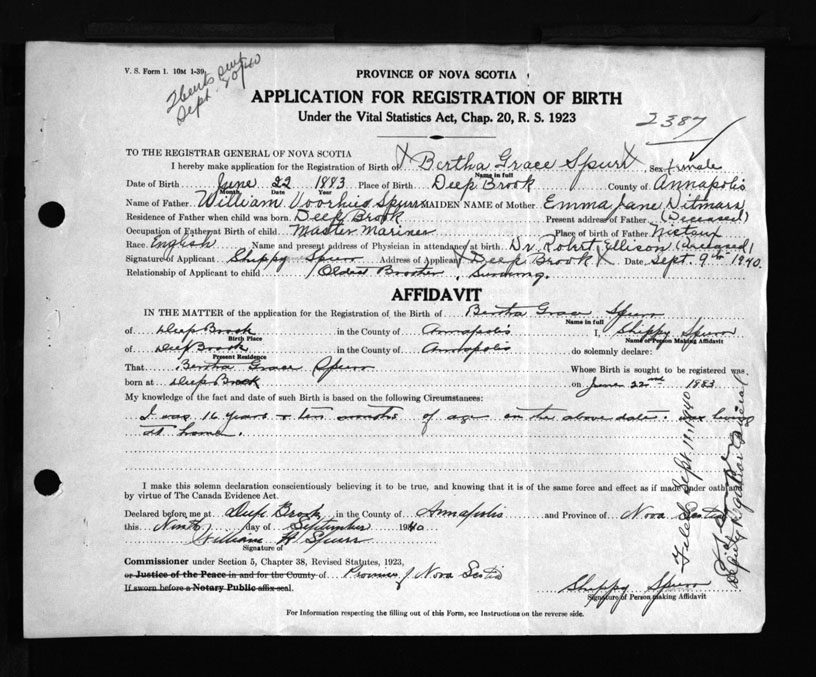 V. S. Form 1. 10M 1-39
Sept. 30/40
PROVINCE OF NOVA SCOTIA
APPLICATION FOR REGISTRATION OF BIRTH
Under the Vital Statistics Act, Chap. 20, R. S. 1923
2387
TO THE REGISTRAR GENERAL OF NOVA SCOTIA
I hereby make application for the Registration of Birth of X Bertha Grace Spurr X, Sex female
Name in full
Date of Birth June 22 1883 Place of Birth Deep Brook County of Annapolis
Month Date Year
Name of Father William Voorhus Spurr MAIDEN NAME of Mother Emma Jane Ditmars
Residence of Father when child was born Deep Brook Present address of Father (Deceased)
Occupation of Father at Birth of child Master Mariner Place of Birth of Father Nictaux
Race English Name and present address of Physician in attendance at birth Dr. Robert Ellison (Deceased)
Signature of Applicant Shippy Spurr Address of Applicant X Deep Brook X Date Sept. 9th 1940.
Relationship of Applicant to child Oldest Brother, Surviving.
AFFIDAVIT
IN THE MATTER of the application for the Registration of the Birth of Bertha Grace Spurr
Name in full
of Deep Brook in the County of Annapolis I, Shippy Spurr
Birth Place Name of Person Making Affidavit
of Deep Brook in the County of Annapolis do solemnly declare:
Present Residence
That Bertha Grace Spurr Whose Birth is sought to be registered was
born at Deep Brook on June 22nd 1883
My knowledge of the fact and date of such Birth is based on the following Circumstances:
I was 16 years & ten months of age on the above date. was living
at home.
I make this solemn declaration conscientiously believing it to be true, and knowing that it is of the same force and effect as if made under oath and
by virtue of The Canada Evidence Act.
Declared before me at Deep Brook in the County of Annapolis and Province of Nova Scotia
this Ninth day of September 1940
William H Spurr
Signature of
Commissioner under Section 5, Chapter 38, Revised Statutes, 1923,
or Justice of the Peace in and for the County of Province of Nova Scotia
If sworn before a Notary Public affix seal.
Shippy Spurr
Signature of Person making Affidavit
For Information respecting the filling out of this Form, see Instructions on the reverse side.
Filed Sept. 11, 1940
Deputy Registrar General